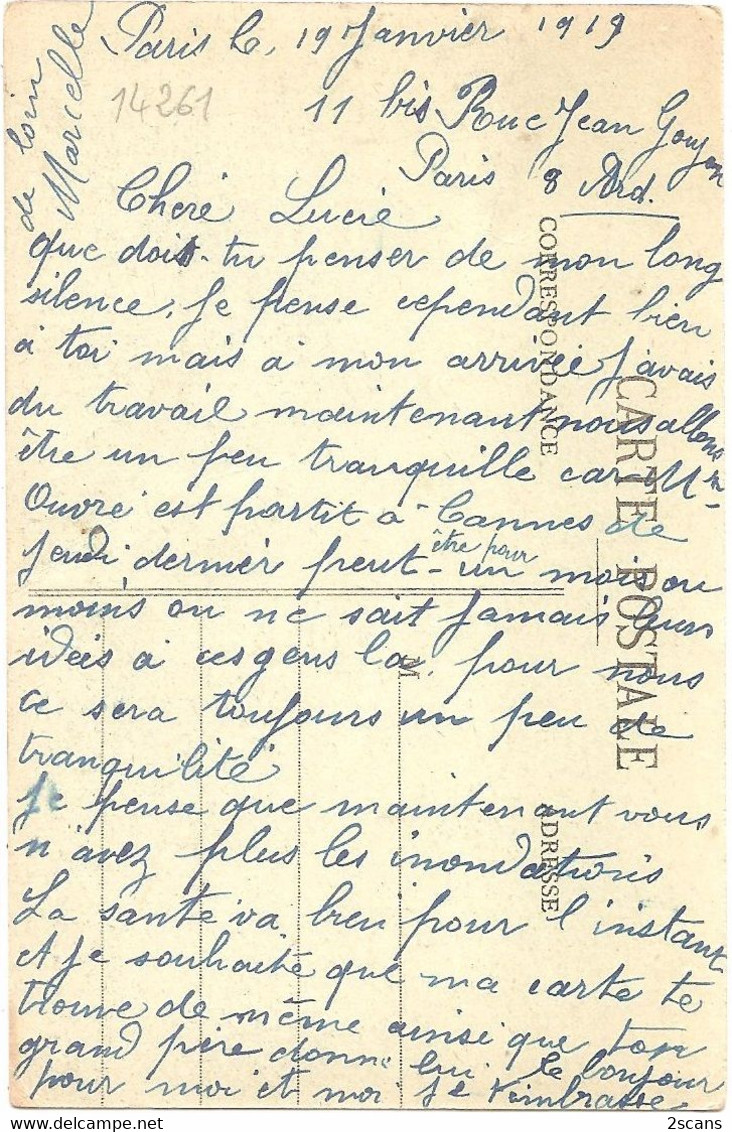 Paris le, 19 Janvier 1919
14261
11 bis Rue Jean Goujon
Paris 8 Ard.
Cheré Lucie
que dois-tu penser de mon long
silence, je pense cependant bien
à toi mais à mon arrivée j'avais
du travail maintenant nous allons
être un peu tranquille car Mr
Ouvré est partit à Cannes de
jeudi dernier peut-être pour un mois ou
moins on ne sait jamais leurs
idées à ces gens la. pour nous
ce sera toujours un peu de
tranquilité
Je pense que maintenant vous
n'avez plus les inondations
La santé va bien pour l'instant
et je souhaite que ma carte te
trouve de même ainsi que ton
grand père donne lui le bonjour
pour moi et moi je t'embrasse
de loin
Marcelle
CARTE POSTALE
CORRESPONDANCE
ADRESSE
M
2scans